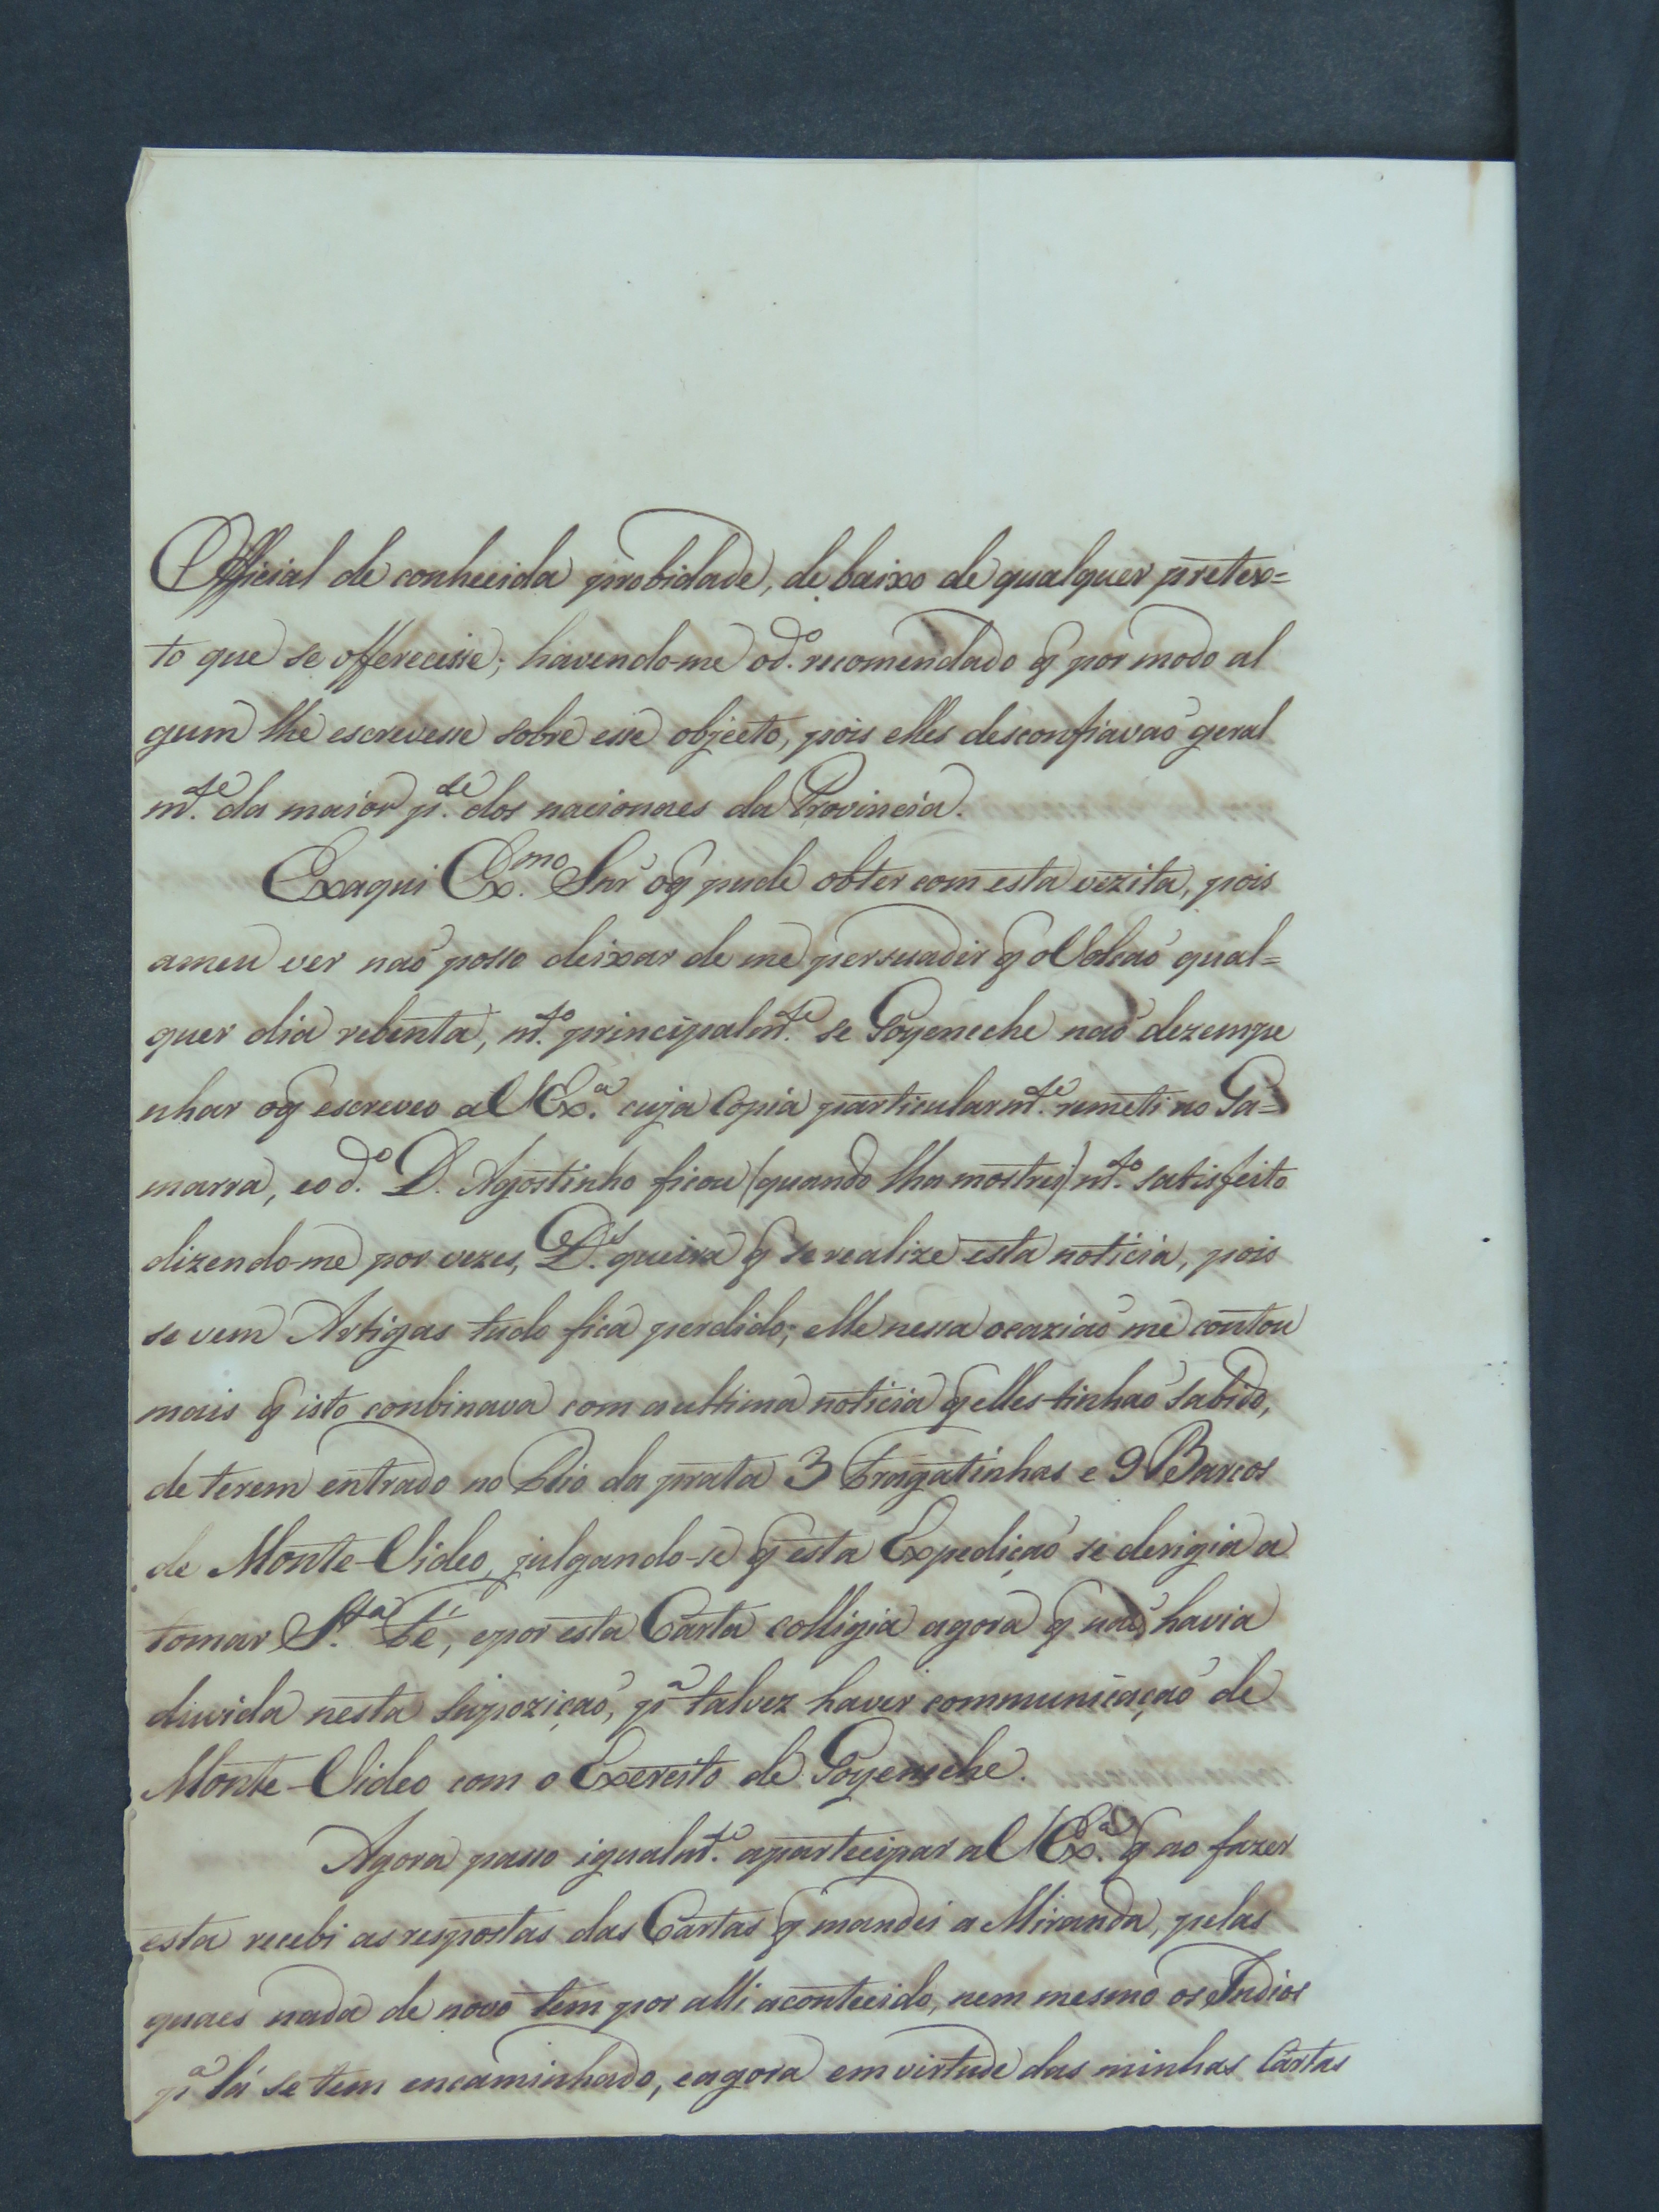 Official de conhecida probidade, de baixo de qualquer pretex=
to que se offerecesse; havendo-me o d.º recomendado q̃ por modo al
gum lhe escrevesse sobre esse objecto, pois elles desconfiavaõ geral
m.te da maior p.te dos nacionaes da Provincia.
Exaqui Ex.mo Snr' oq̃ pude obter com esta vezita, pois
ameu ver naõ posso deixar de me persuadir q̃ o Volcaõ qual=
quer dia rebenta, m.to principalm.te se Goyeneche naõ dezempe
nhar oq̃ escreveo a V Ex.a cuja Copia particularm.te remeti no Ga=
marra, eo d.º D. Agostinho ficou (quando lha mostrei) m.to satisfeito
dizendo-me por vezes, D.s queira q̃ se realize esta noticia, pois
se vem Artigas tudo fica perdido; elle nessa ocaziaõ me contou
mais q̃ isto conbinava com aultima noticia q̃ elles tinhaõ sabido,
de terem entrado no Rio da prata 3 Fragatinhas e 9 Barcos
de Monte-Video, julgando-se q̃ esta Expediçaõ se derigia a
tomar S.ta Fé, epor esta Carta colligia agora q̃ naõ havia
duvida nesta supoziçaõ, p.a talvez haver communicaçaõ de
Monte-Video com o Exercito de Goyeneche.
Agora passo igualm.te apartecipar a V Ex.a q̃ ao fazer
esta recebi as respostas das Cartas q̃ mandei a Miranda, pelas
quaes nada de novo tem por alli acontecido, nem mesmo os Indios
p.a lá se tem encaminhado, eagora em virtude das minhas Cartas